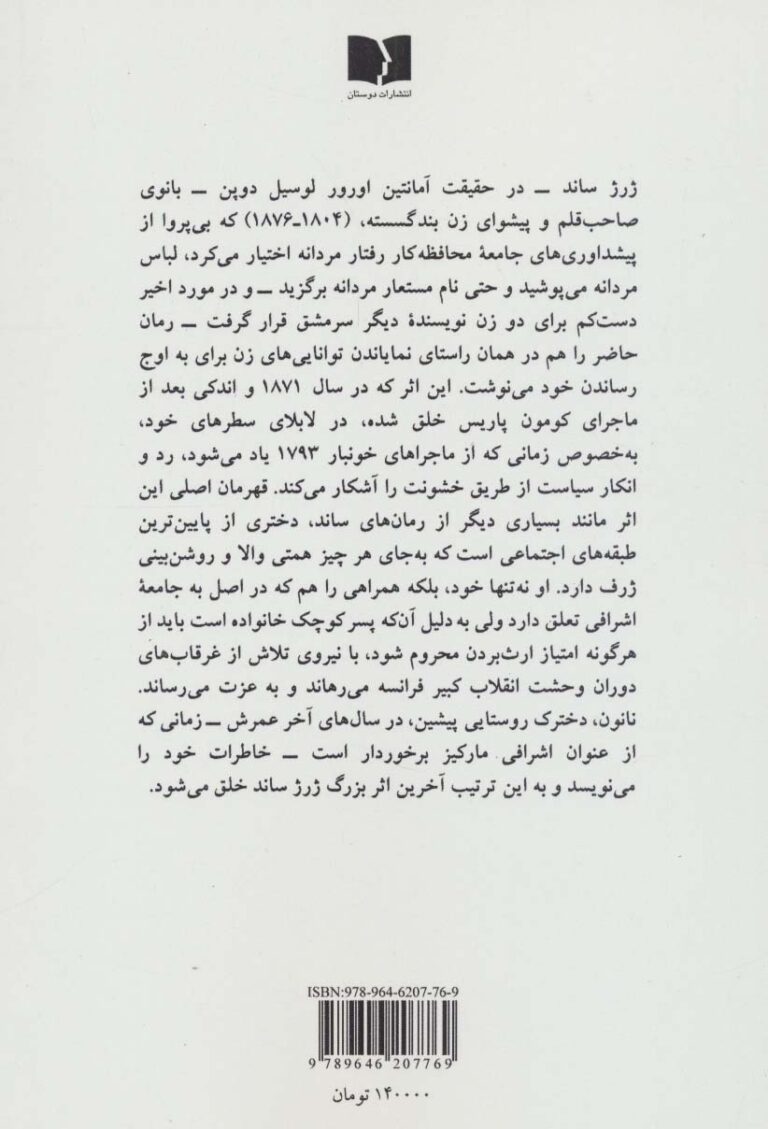 انتشارات دوستان
ژرژ ساند ــ در حقیقت آمانتین اورور لوسیل دوپن ــ بانوی
صاحب‌قلم و پیشوای زن بندگسسته، (۱۸۰۴ـ۱۸۷۶) که بی‌پروا از
پیشداوری‌های جامعهٔ محافظه‌کار رفتار مردانه اختیار می‌کرد، لباس
مردانه می‌پوشید و حتی نام مستعار مردانه برگزید ــ و در مورد اخیر
دست‌کم برای دو زن نویسندهٔ دیگر سرمشق قرار گرفت ــ رمان
حاضر را هم در همان راستای نمایاندن توانایی‌های زن برای به اوج
رساندن خود می‌نوشت. این اثر که در سال ۱۸۷۱ و اندکی بعد از
ماجرای کومون پاریس خلق شده، در لابلای سطرهای خود،
به‌خصوص زمانی که از ماجراهای خونبار ۱۷۹۳ یاد می‌شود، رد و
انکار سیاست از طریق خشونت را آشکار می‌کند. قهرمان اصلی این
اثر مانند بسیاری دیگر از رمان‌های ساند، دختری از پایین‌ترین
طبقه‌های اجتماعی است که به‌جای هر چیز همتی والا و روشن‌بینی
ژرف دارد. او نه‌تنها خود، بلکه همراهی را هم که در اصل به جامعهٔ
اشرافی تعلق دارد ولی به دلیل آن‌که پسر کوچک خانواده است باید از
هرگونه امتیاز ارث‌بردن محروم شود، با نیروی تلاش از غرقاب‌های
دوران وحشت انقلاب کبیر فرانسه می‌رهاند و به عزت می‌رساند.
نانون، دخترک روستایی پیشین، در سال‌های آخر عمرش ــ زمانی که
از عنوان اشرافی مارکیز برخوردار است ــ خاطرات خود را
می‌نویسد و به این ترتیب آخرین اثر بزرگ ژرژ ساند خلق می‌شود.
ISBN:978-964-6207-76-9
9 789646 207769
۱۴۰۰۰۰ تومان